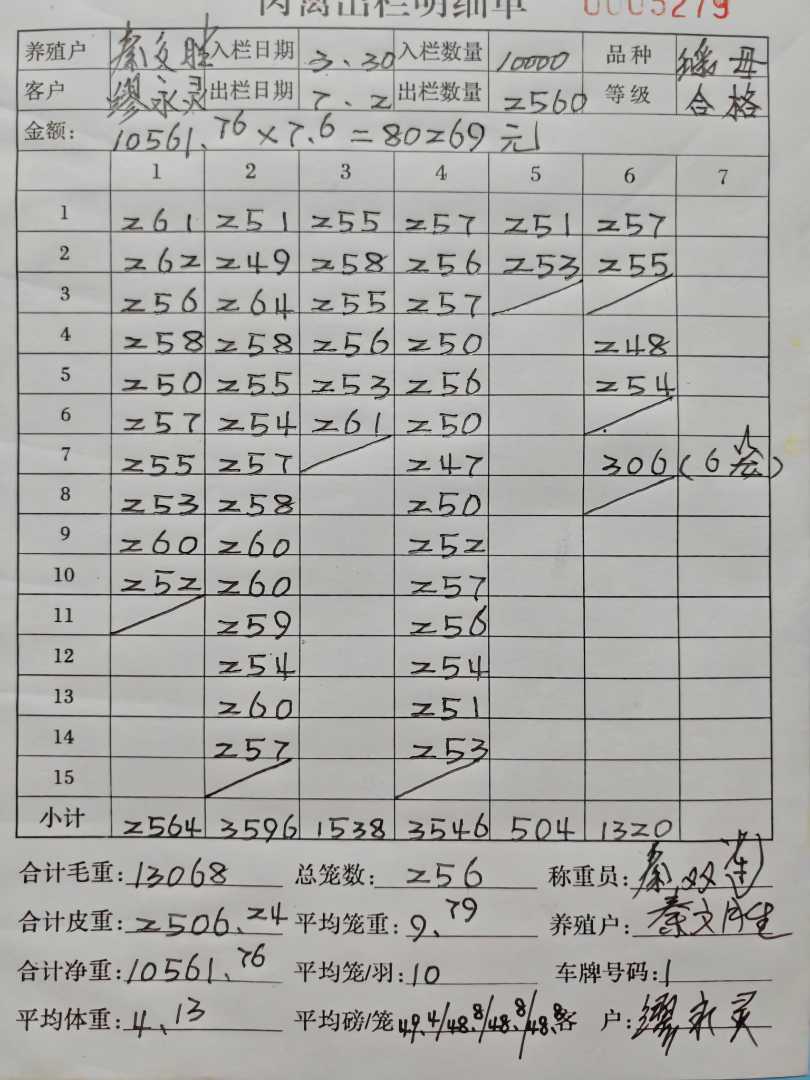 肉禽出栏明细单 0005279
养殖户 秦文胜 入栏日期 3、30 入栏数量 10000 品种 瑶母
客户 缪永灵 出栏日期 7、2 出栏数量 2560 等级 合格
金额: 10561.76×7.6=80269元
1 2 3 4 5 6 7
1 261 251 255 257 251 257
2 262 249 258 256 253 255
3 256 264 255 257
4 258 258 256 250 248
5 250 255 253 256 254
6 257 254 261 250
7 255 257 247 306(6只)
8 253 258 250
9 260 260 252
10 252 260 257
11 259 256
12 254 254
13 260 251
14 257 253
15
小计 2564 3596 1538 3546 504 1320
合计毛重: 13068 总笼数: 256 称重员: 秦双
合计皮重: 2506、24 平均笼重: 9、79 养殖户: 秦文胜
合计净重: 10561、76 平均笼/羽: 10 车牌号码: 1
平均体重: 4、13 平均磅/笼 49.4/48.8/48.8/48.8 客 户: 缪永灵